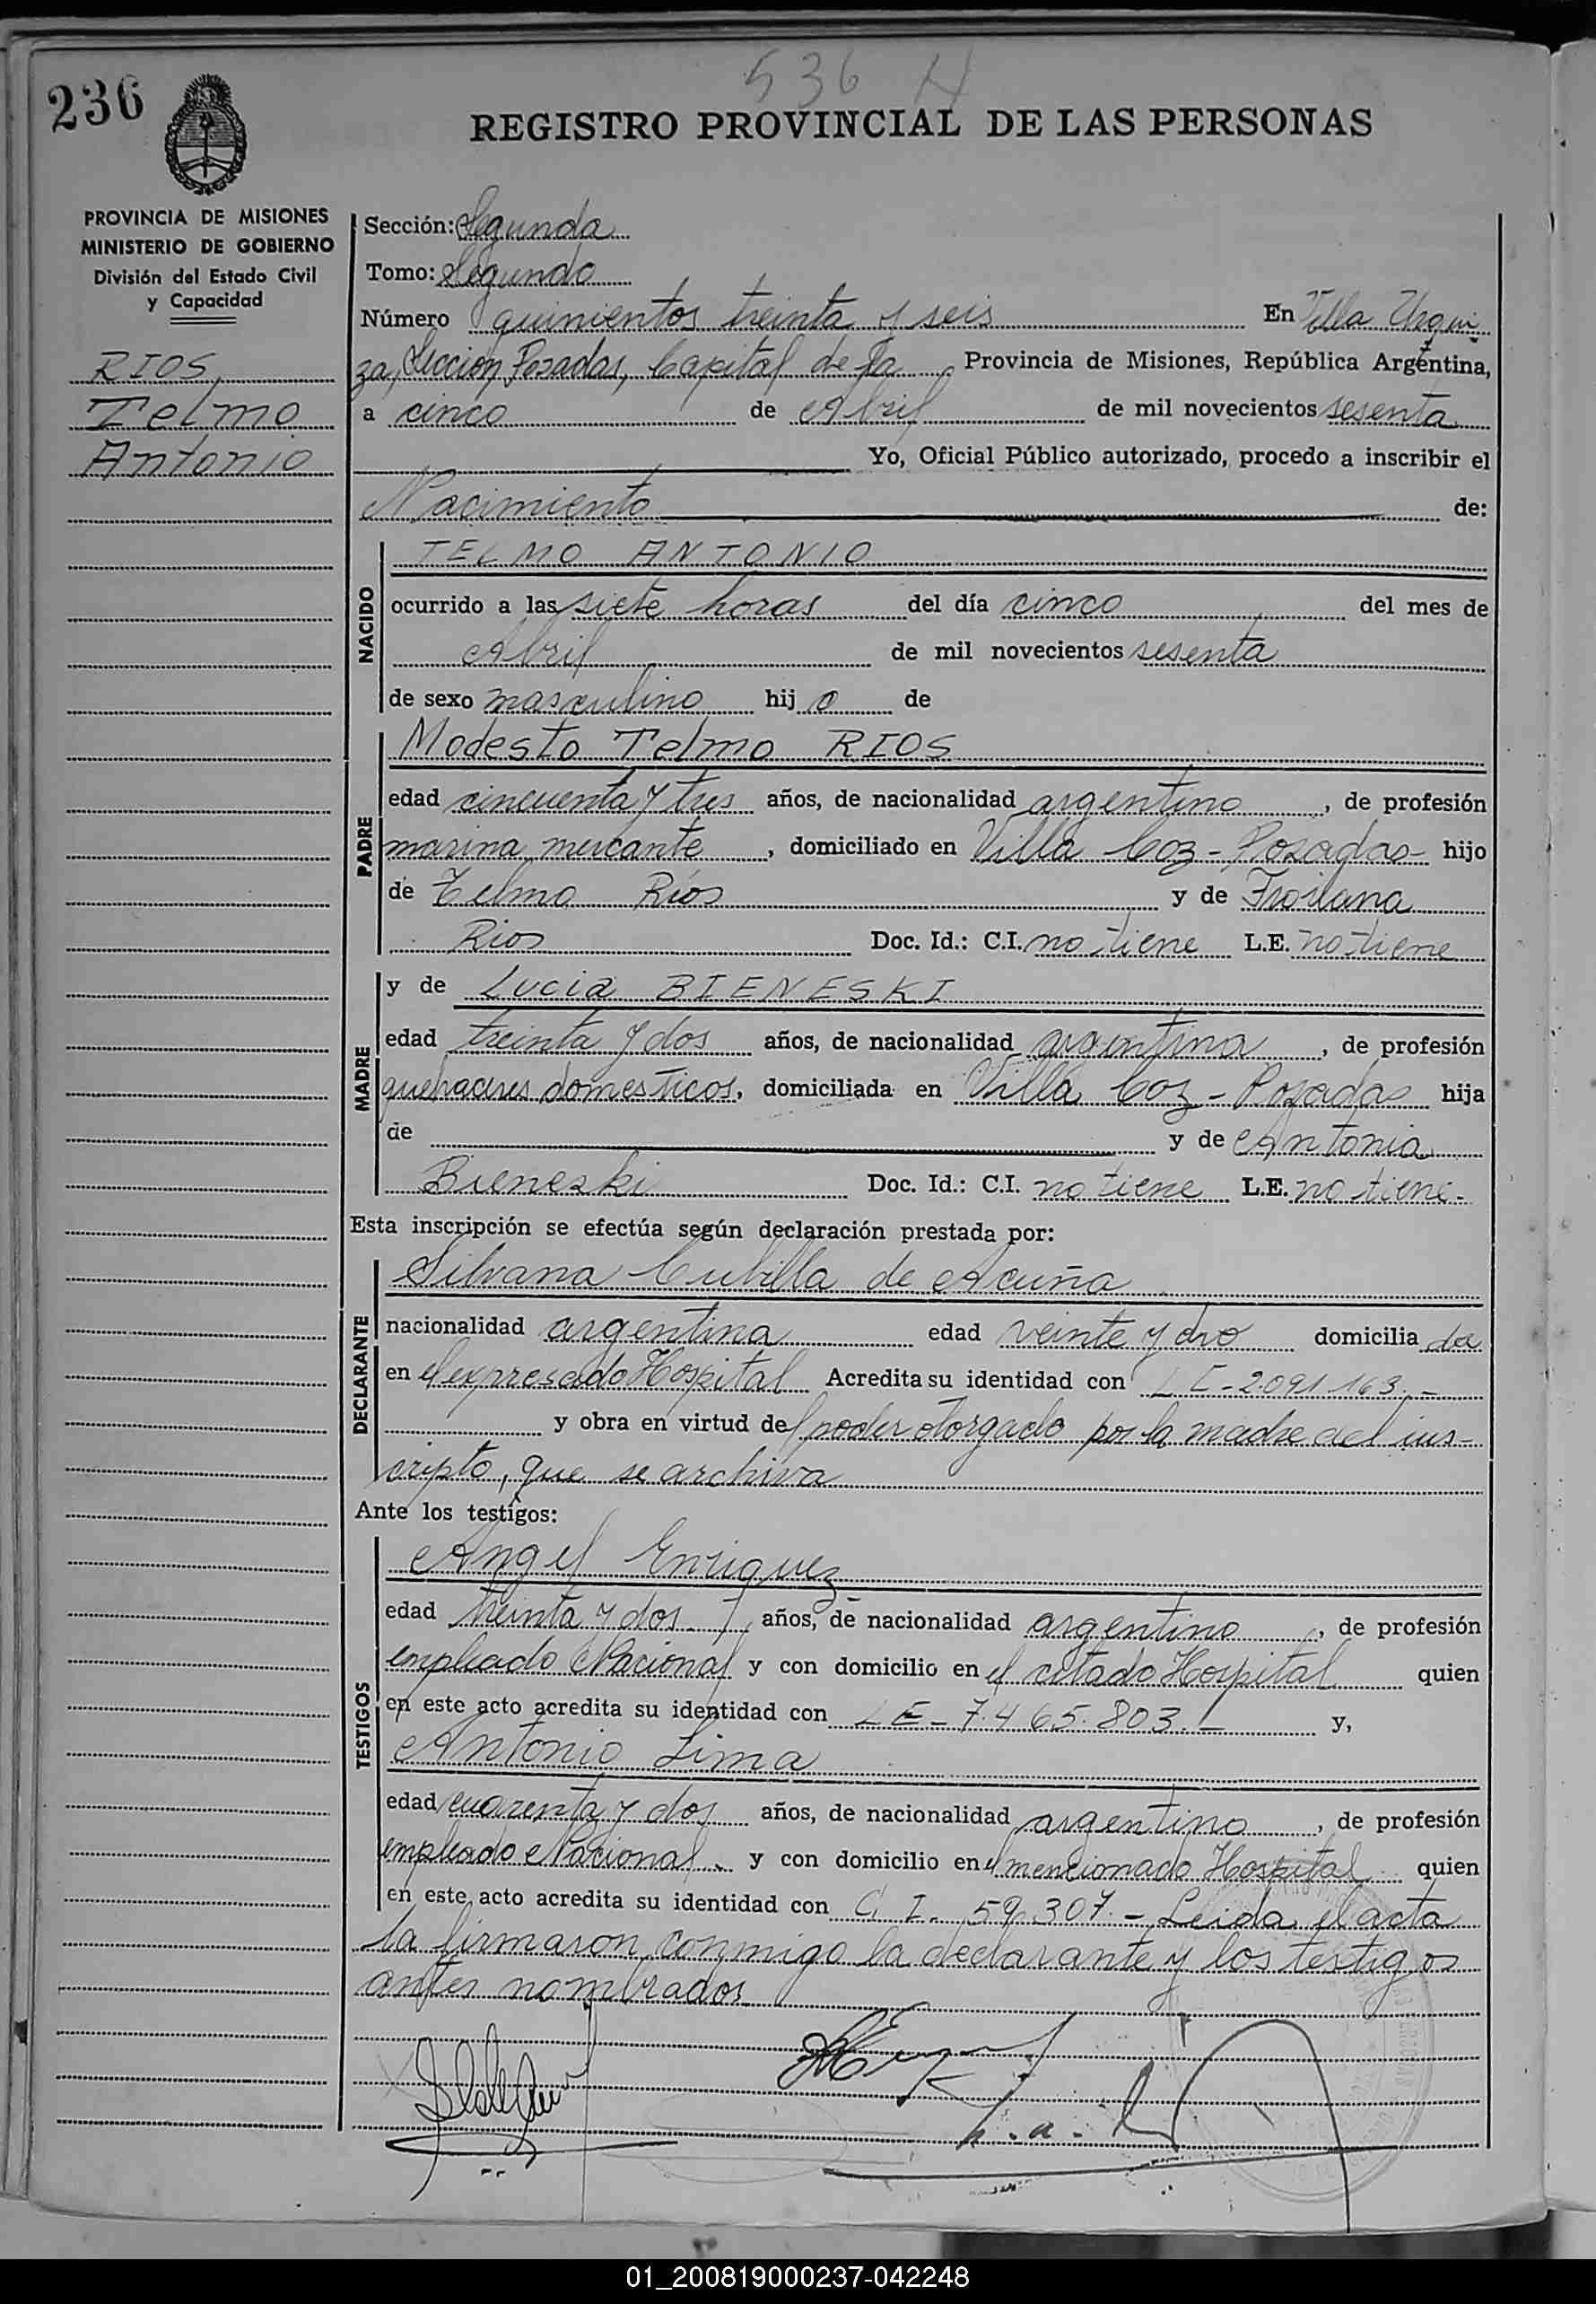 536 N
236
REGISTRO PROVINCIAL DE LAS PERSONAS
PROVINCIA DE MISIONES
MINISTERIO DE GOBIERNO
División del Estado Civil
y Capacidad
RIOS,
Telmo
Antonio
Sección: Segunda
Tomo: Segundo
Número quinientos treinta y seis En Villa Urqui
za, Seccion Posadas, Capital de la Provincia de Misiones, República Argentina,
a cinco de Abril de mil novecientos sesenta
Yo, Oficial Público autorizado, procedo a inscribir el
Nacimiento de:
NACIDO
TELMO ANTONIO
ocurrido a las siete horas del día cinco del mes de
Abril de mil novecientos sesenta
de sexo masculino hijo de
PADRE
Modesto Telmo RIOS
edad cincuenta y tres años, de nacionalidad argentino, de profesión
marina mercante, domiciliado en Villa Coz - Posadas - hijo
de Telmo Rios y de Froilana
Rios Doc. Id.: C.I. no tiene L.E. no tiene
MADRE
y de Lucia BIENESKI
edad treinta y dos años, de nacionalidad argentina, de profesión
quehaceres domesticos, domiciliada en Villa Coz - Posadas hija
de y de Antonia
Bieneski Doc. Id.: C.I. no tiene L.E. no tiene.-
Esta inscripción se efectúa según declaración prestada por:
DECLARANTE
Silvana Cubilla de Acuña
nacionalidad argentina edad veinte y dos domiciliada
en el expresado Hospital Acredita su identidad con L C - 2.091.163.-
y obra en virtud del poder otorgado por la madre del ins-
cripto, que se archiva
Ante los testigos:
TESTIGOS
Angel Enriquez
edad treinta y dos.- años, de nacionalidad argentino, de profesión
empleado Nacional y con domicilio en el citado Hospital quien
en este acto acredita su identidad con L E - 7.465.803.- y,
Antonio Lima
edad cuarenta y dos años, de nacionalidad argentino, de profesión
empleado Nacional. y con domicilio en el mencionado Hospital quien
en este acto acredita su identidad con C. I. 59.307.- Leida el acta
la firmaron conmigo la declarante y los testigos
antes nombrados
01_200819000237-042248